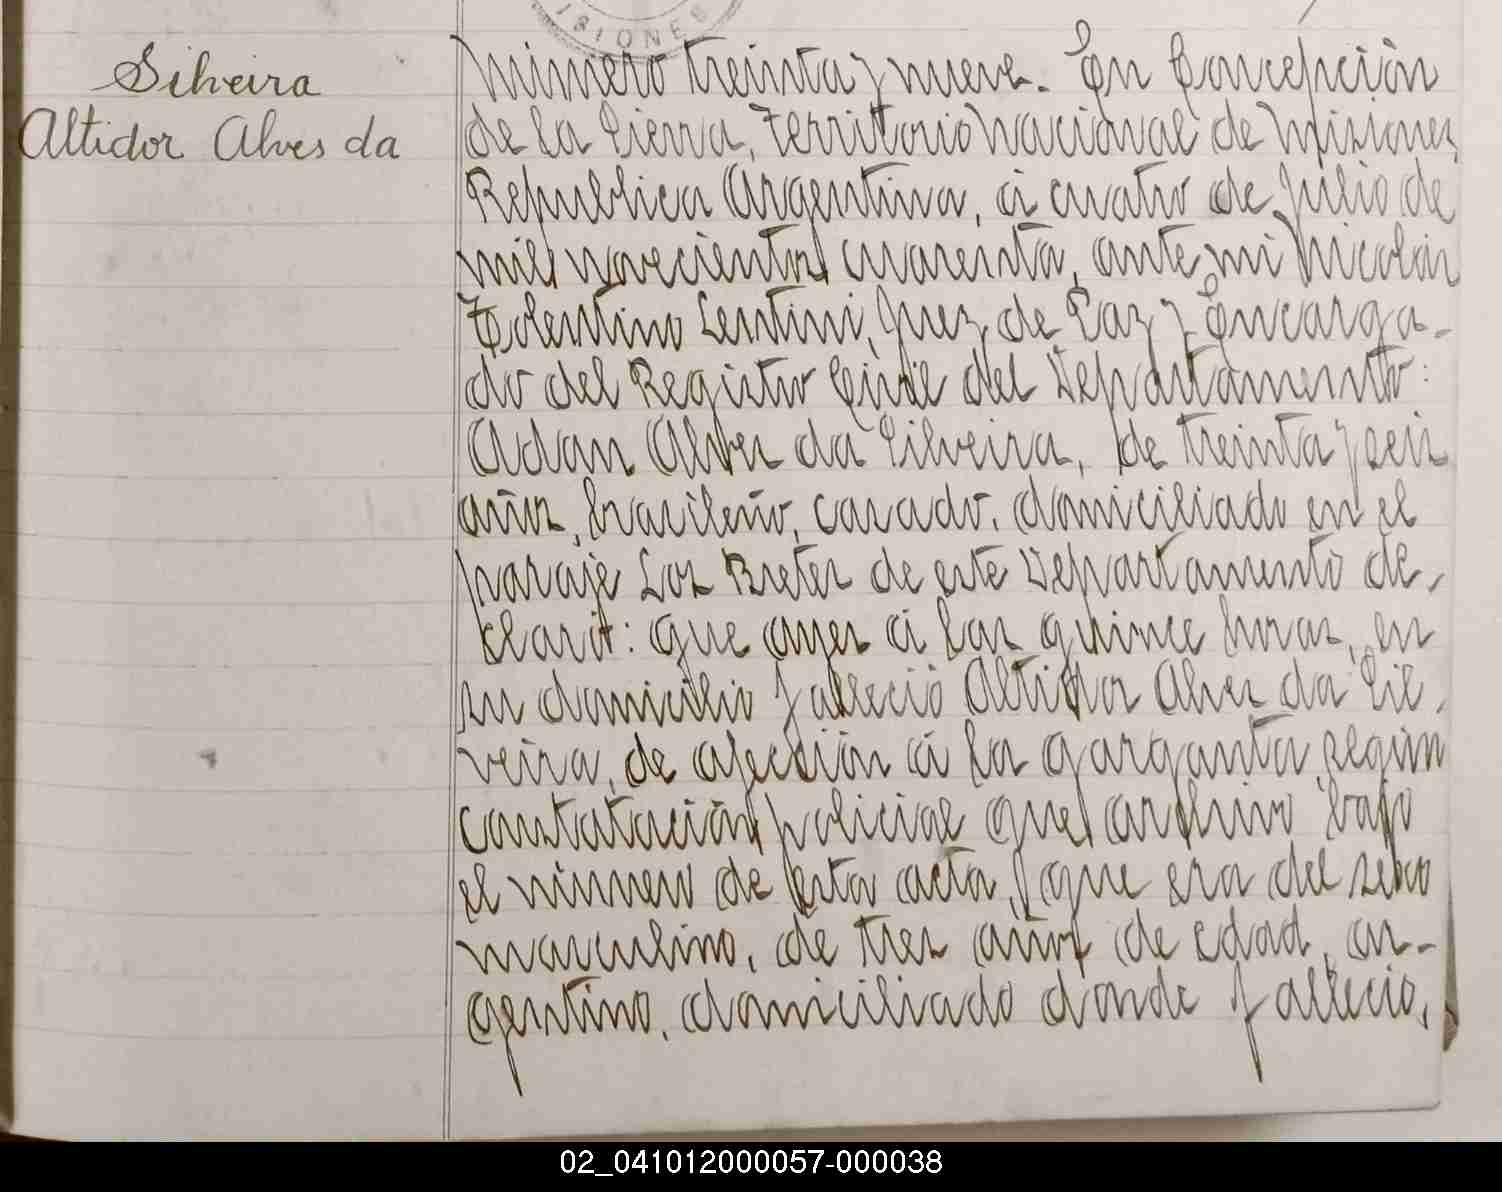 ISIONES
Silveira
Altidor Alves da
Número treinta y nueve. En Concepción
de la Sierra, Territorio Nacional de Misiones,
República Argentina, á cuatro de Julio de
mil novecientos cuarenta, ante mi Nicolás
Tolentino Lentini, Juez de Paz y Encarga-
do del Registro Civil del Departamento:
Adan Alves da Silveira, de treinta y seis
años, brasileño, casado, domiciliado en el
paraje Los Bretes de este Departamento de-
claró: que ayer á las quince horas, en
su domicilio falleció Altidor Alves da Sil-
veira, de afección á la garganta, según
constatación policial que archivo bajo
el número de esta acta, que era del sexo
masculino, de tres años de edad, ar-
gentino, domiciliado donde falleció,
02_041012000057-000038